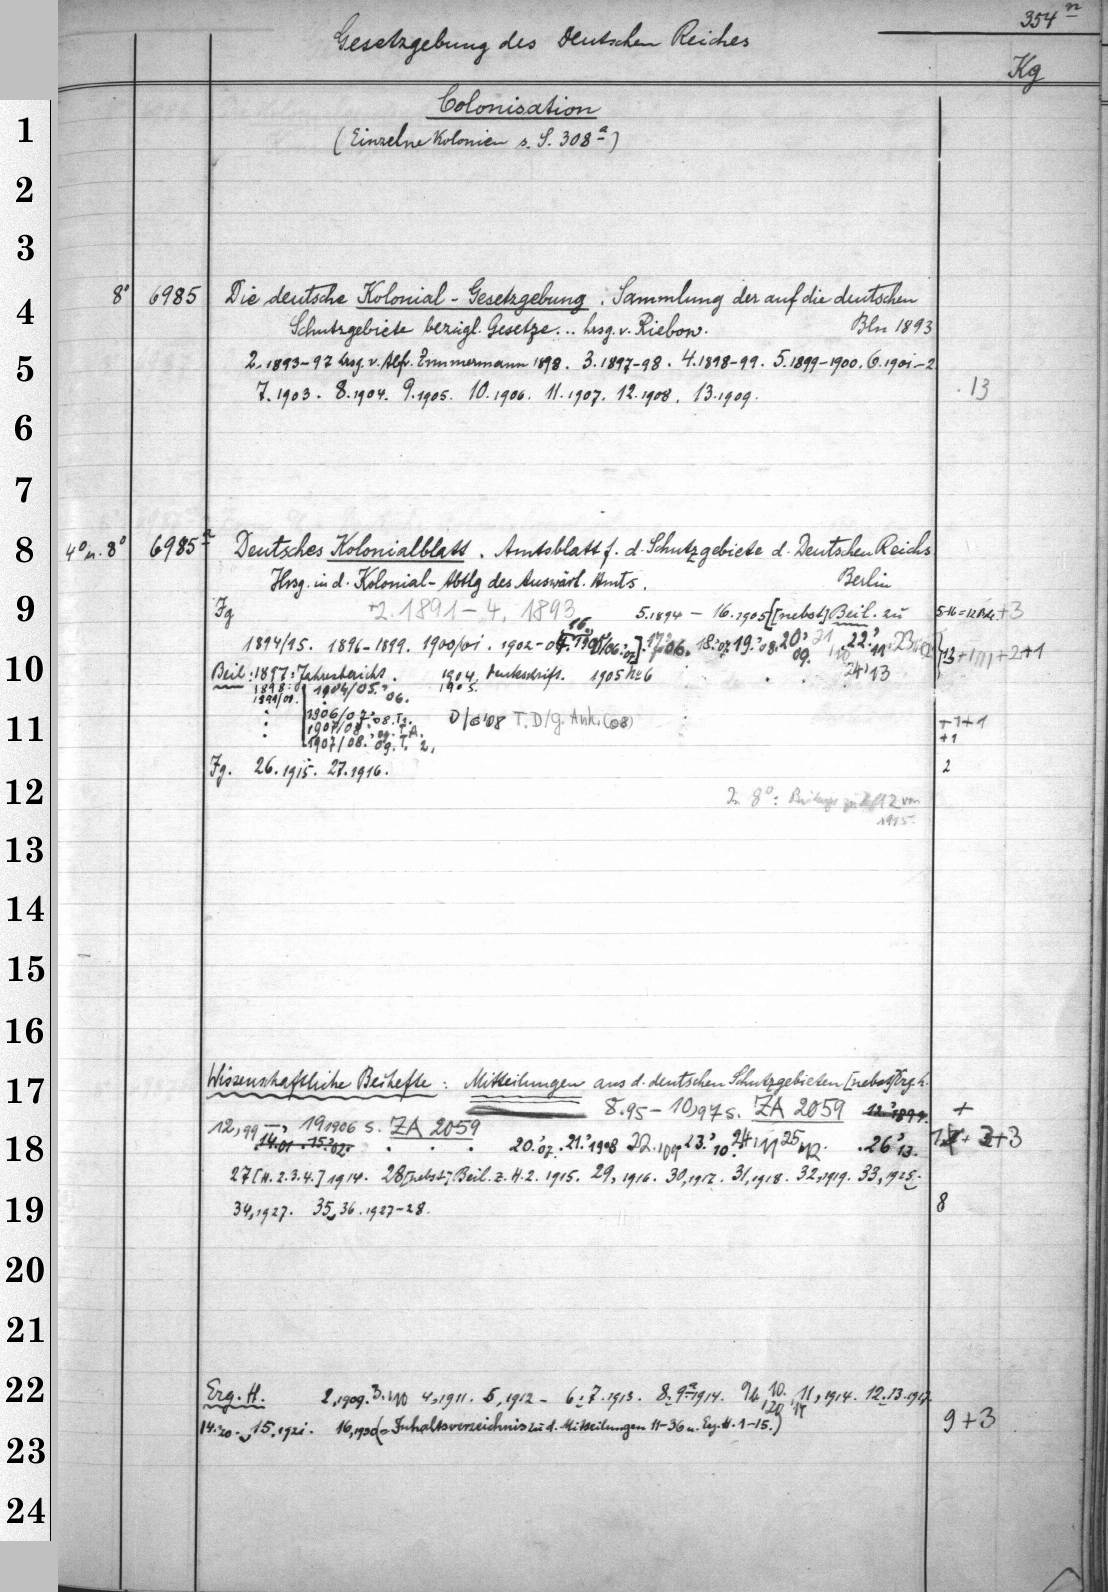 354 n
Gesetzgebung des Deutschen Reiches
Kg
Colonisation
(Einzelne Kolonien s. S. 308 a)
1
2
3
8° 6985 Die deutsche Kolonial-Gesetzgebung. Sammlung der auf die deutschen
4
Schutzgebiete bezügl. Gesetze... hrsg. v. Riebow. Bln 1893
5
2. 1893-97 hrsg. v. Alfr. Zimmermann 1898. 3. 1897-98. 4. 1898-99. 5. 1899-1900. 6. 1901-2
7. 1903. 8. 1904. 9. 1905. 10. 1906. 11. 1907. 12. 1908. 13. 1909. 13
6
7
8
4° u. 8° 6985 a Deutsches Kolonialblatt. Amtsblatt f. d. Schutzgebiete d. Deutschen Reichs
Hrsg. in d. Kolonial-Abtlg des Auswärt. Amts. Berlin
9
Fg 2. 1891-4. 1893 5. 1894 - 16. 1905 [nebst] Beil. zu +3
1894/95. 1896-1899. 1900/01. 1902- 17. 06. 18.'07 19.'08. 20.'09. 21 10 22.'11. 23 13 + +2+1
10
24,'13
Beil: 1897: Jahresbericht. 1904, Denkschrift. 1905 No 6
1898: 1904/05. 06. 1905.
1906/07. 08. T.
11
1907/08. 09. T. A. D/O'08 T. D/g. Ank. (08) +1+1
1907/08. 09. T. 2. +1
Fg. 26. 1915. 27. 1916. 2
12
In 8°: 12 von
1915.
13
14
15
16
17
Wissenschaftliche Beihefte: Mitteilungen aus d. deutschen Schutzgebieten [nebst] Erg. h.
8. 95 - 10, 97 s. ZA 2059 12.' 1899. +
12, 99 - 19 1906 s. ZA 2059
18
14. 01. 15.'02. 20.'07. 21.' 1908 22. 1909 23.'10. 24,'11 25,'12. 26'13. +3
27 [H. 2. 3. 4.] 1914. 28 [nebst] Beil. z. H. 2. 1915. 29, 1916. 30, 1917. 31, 1918. 32, 1919. 33, 1925.
19
34, 1927. 35, 36. 1927-28. 8
20
21
22
Erg. H. 2, 1909. 3. 4, 1911. 5, 1912 - 6. 7. 1913. 8. 9a 1914. 10. 11, 1914. 12. 13. 1917.
14. 20. 15. 1921. 16, 1930 (= Inhaltsverzeichnis zu d. Mitteilungen 11-36 u. Erg. H. 1-15.) 9+3
23
24